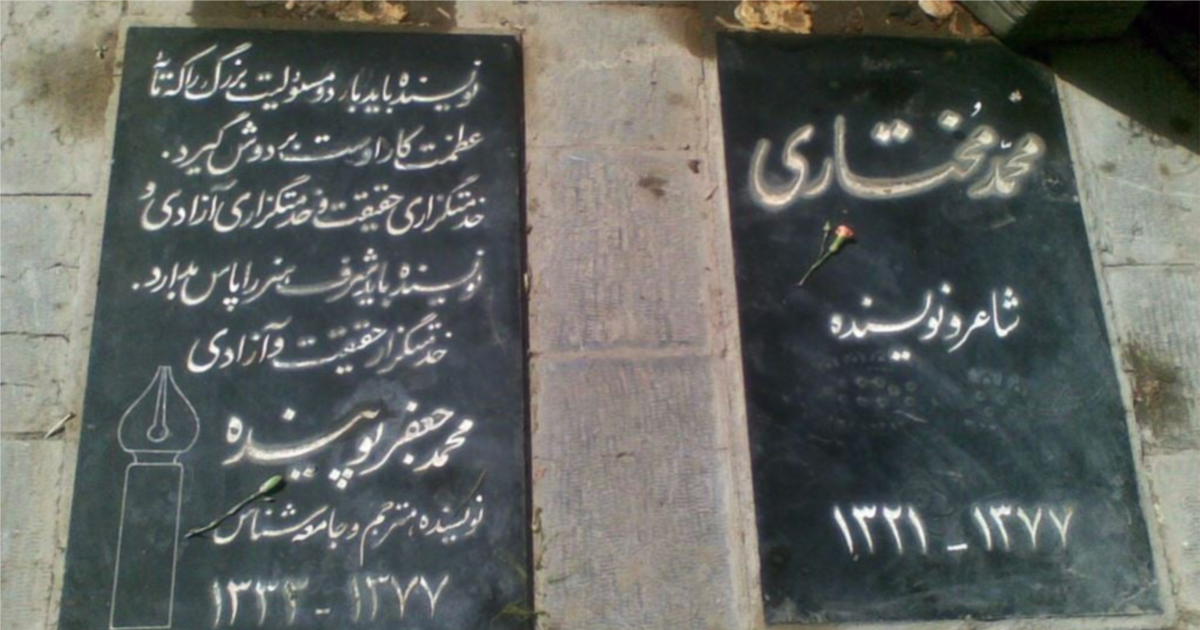 محمّد مُختاری
شاعر و نویسنده
۱۳۷۷ _ ۱۳۲۱
نویسنده باید بار دو مسئولیت بزرگ را که
عظمت کار اوست بر دوش گیرد.
خدمتگزاری حقیقت و خدمتگزاری آزادی و
نویسنده باید شرف هنر را پاس بدارد.
خدمتگزار حقیقت و آزادی
محمد جعفر پوینده
نویسنده، مترجم و جامعه شناس
۱۳۷۷ - ۱۳۳۳